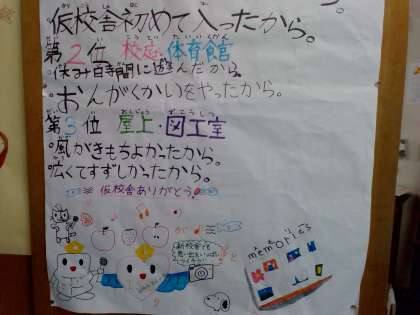 仮校舎初めて入ったから。
第2位 校庭・体育館
・休み時間に遊んだから。
・おんがくかいをやったから。
第3位 屋上・図工室
・風がきもちよかったから。
・広くてすずしかったから。
仮校舎ありがとう!
memories